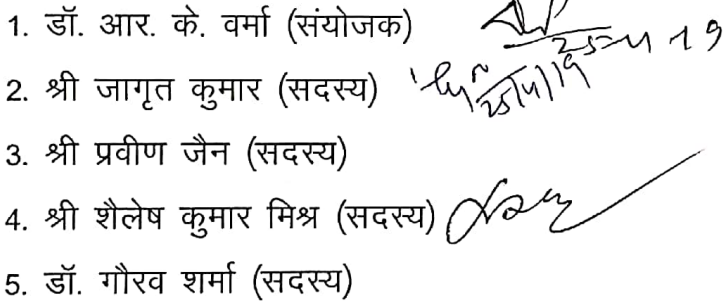 1. डॉ. आर. के. वर्मा (संयोजक)
2. श्री जागृत कुमार (सदस्य) 25/4/19
3. श्री प्रवीण जैन (सदस्य)
4. श्री शैलेष कुमार मिश्र (सदस्य)
5. डॉ. गौरव शर्मा (सदस्य)